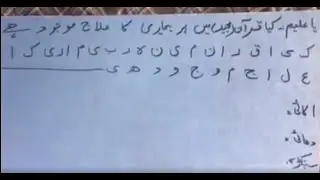 یا علیم۔ کیا قرآن مجید میں ہر بیماری کا علاج موجود ہے
ک ی ا ق ر ا ن م ی ن ہ ر ب ی م ا ر ی ک ا
ع ل ا ج م و ج و د ھ ی
اکائی:
دہائی: